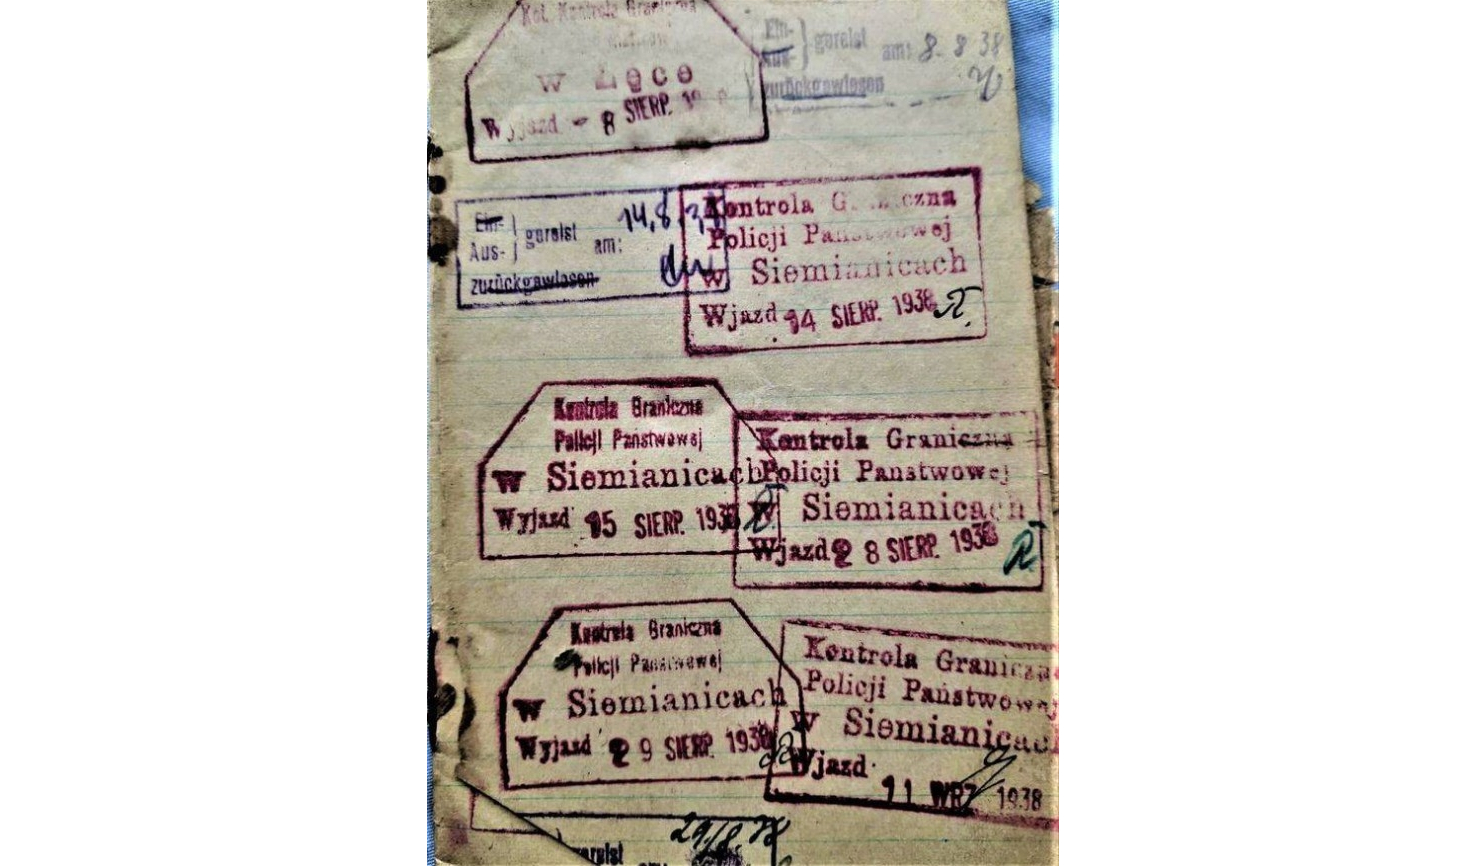 Kontrola Graniczna
w Łęce
Wyjazd - 8 SIERP. 19
Ein-
Aus-
gereist
am: 8. 8 38
zurückgewiesen
Ein-
Aus-
gereist
am: 14.8.38
zurückgewiesen
Kontrola G czna
Policji Państwowej
w Siemianicach
Wjazd 14 SIERP. 1938
Kontrola Graniczna
Policji Państwowej
w Siemianicach
Wyjazd 15 SIERP. 1938
Kontrola Graniczna
Policji Państwowej
w Siemianicach
Wjazd 2 8 SIERP. 1938
Kontrola Graniczna
Policji Państwowej
w Siemianicach
Wyjazd 2 9 SIERP. 1938
Kontrola Graniczna
Policji Państwowej
w Siemianicac
Wjazd
11 WRZ 1938
29/8. 38
gereist